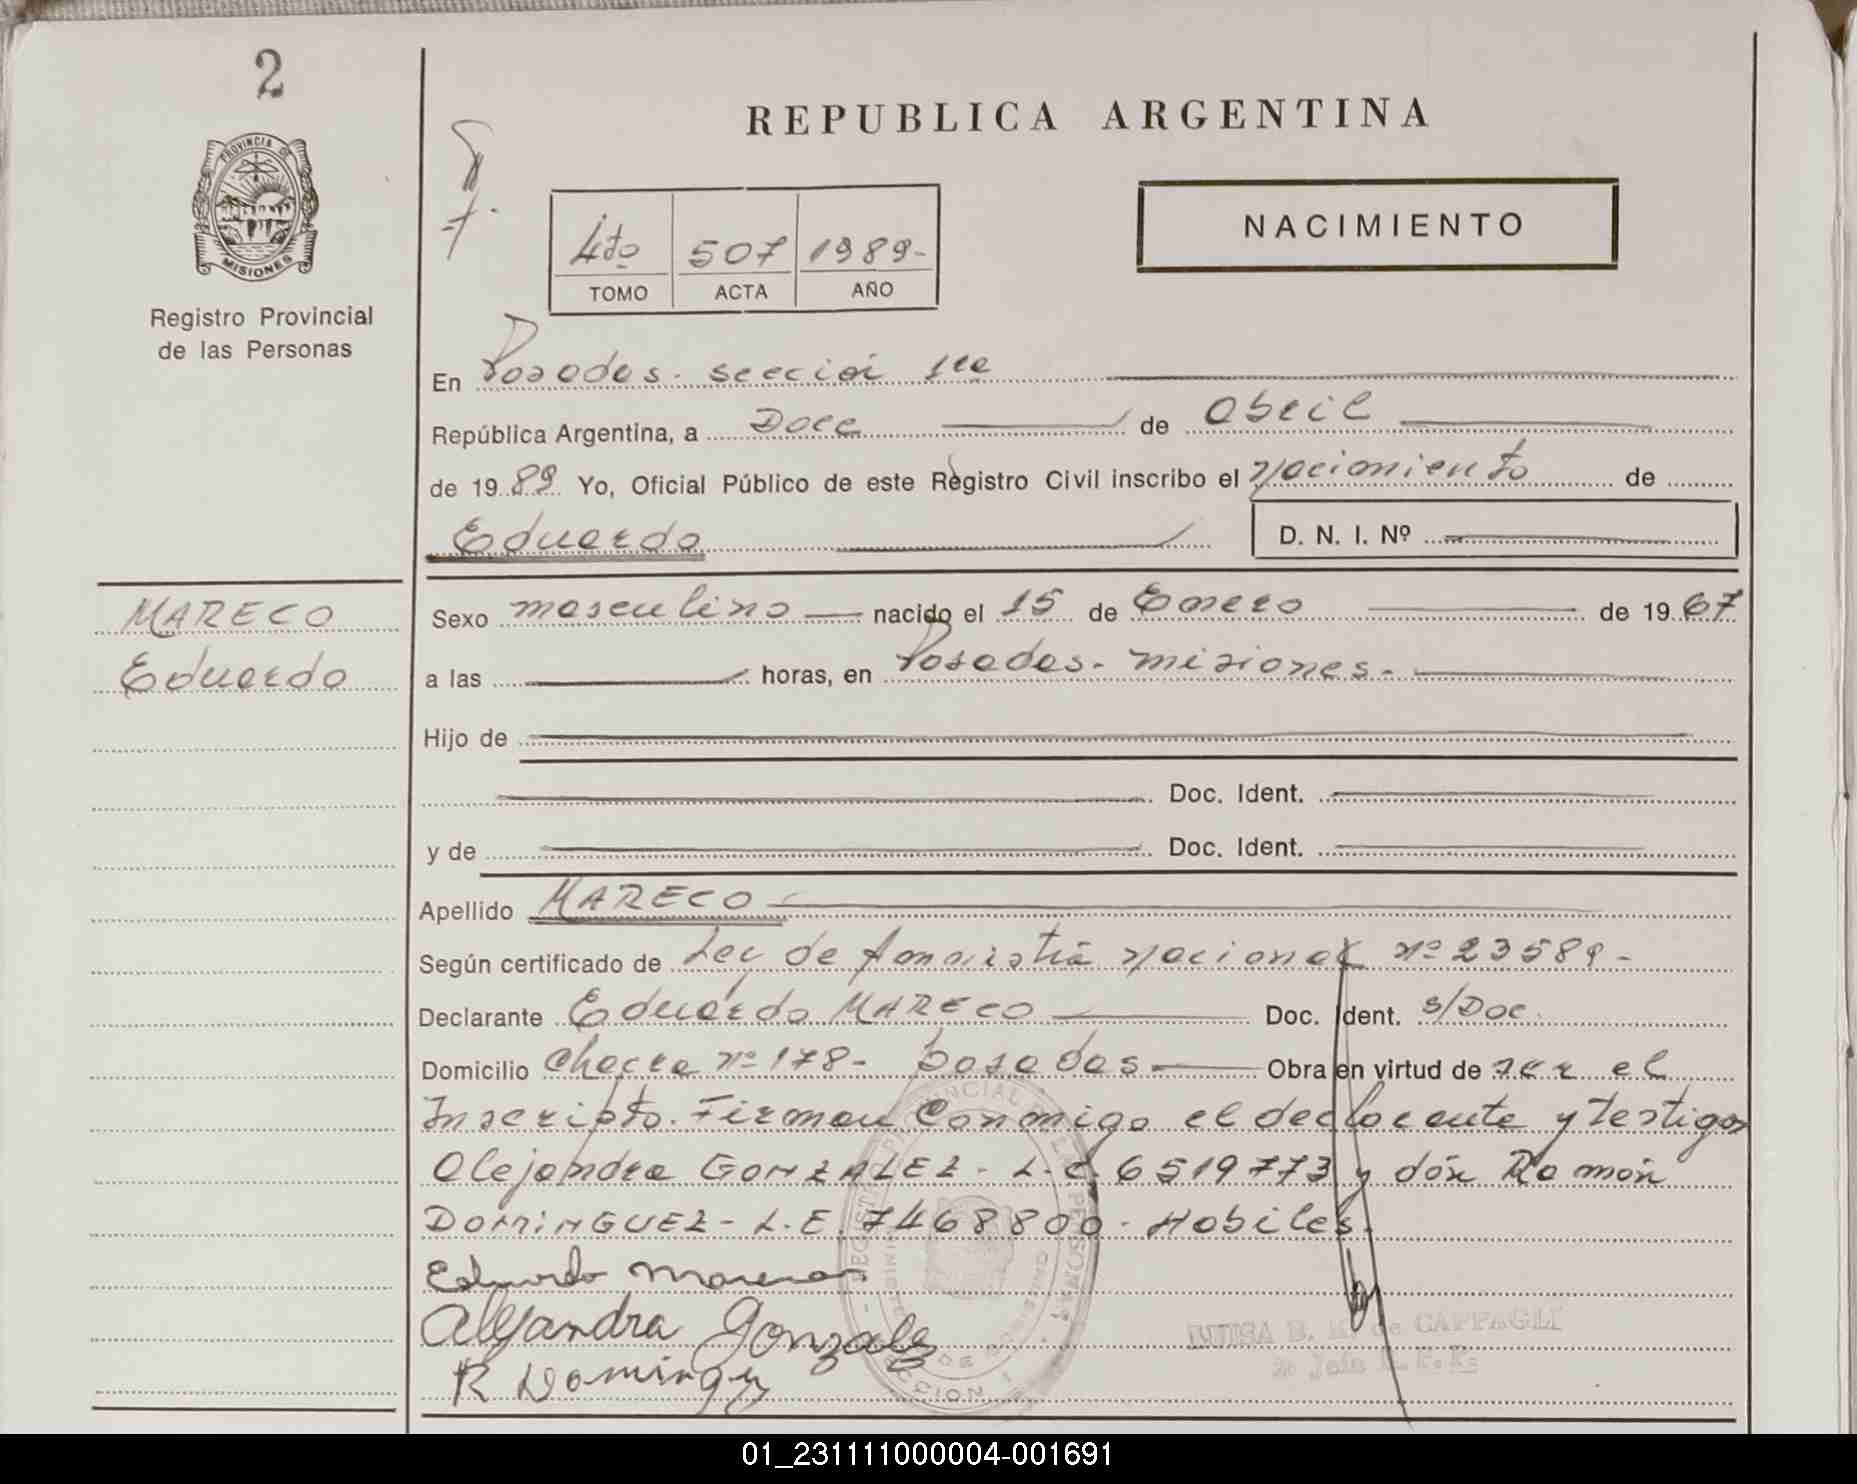 2
PROVINCIA DE
MISIONES
Registro Provincial
de las Personas
MARECO
Eduardo
REPUBLICA ARGENTINA
NACIMIENTO
4to 507 1989-
TOMO ACTA AÑO
En Posadas. sección 1ra
República Argentina, a Doce de Abril
de 1989 Yo, Oficial Público de este Registro Civil inscribo el nacimiento de
Eduardo D. N. I. Nº
Sexo masculino nacido el 15 de Enero de 1967
a las horas, en Posadas- misiones-
Hijo de
Doc. Ident.
y de Doc. Ident.
Apellido MARECO
Según certificado de Ley de Amnistía Nacional Nº 23589-
Declarante Eduardo MARECO Doc. Ident. s/Doc.
Domicilio Chacra nº 178- Posadas Obra en virtud de ser el
Inscripto. Firman Conmigo el declarante y testigos
Alejandra GONZALEZ- L.C. 6519773 y dón Ramón
DOMINGUEZ- L.E. 7468800- Habiles.
Eduardo
Alejandra Gonzalez
R Dominguez
LUISA B. M. de CAFFAGLI
01_231111000004-001691